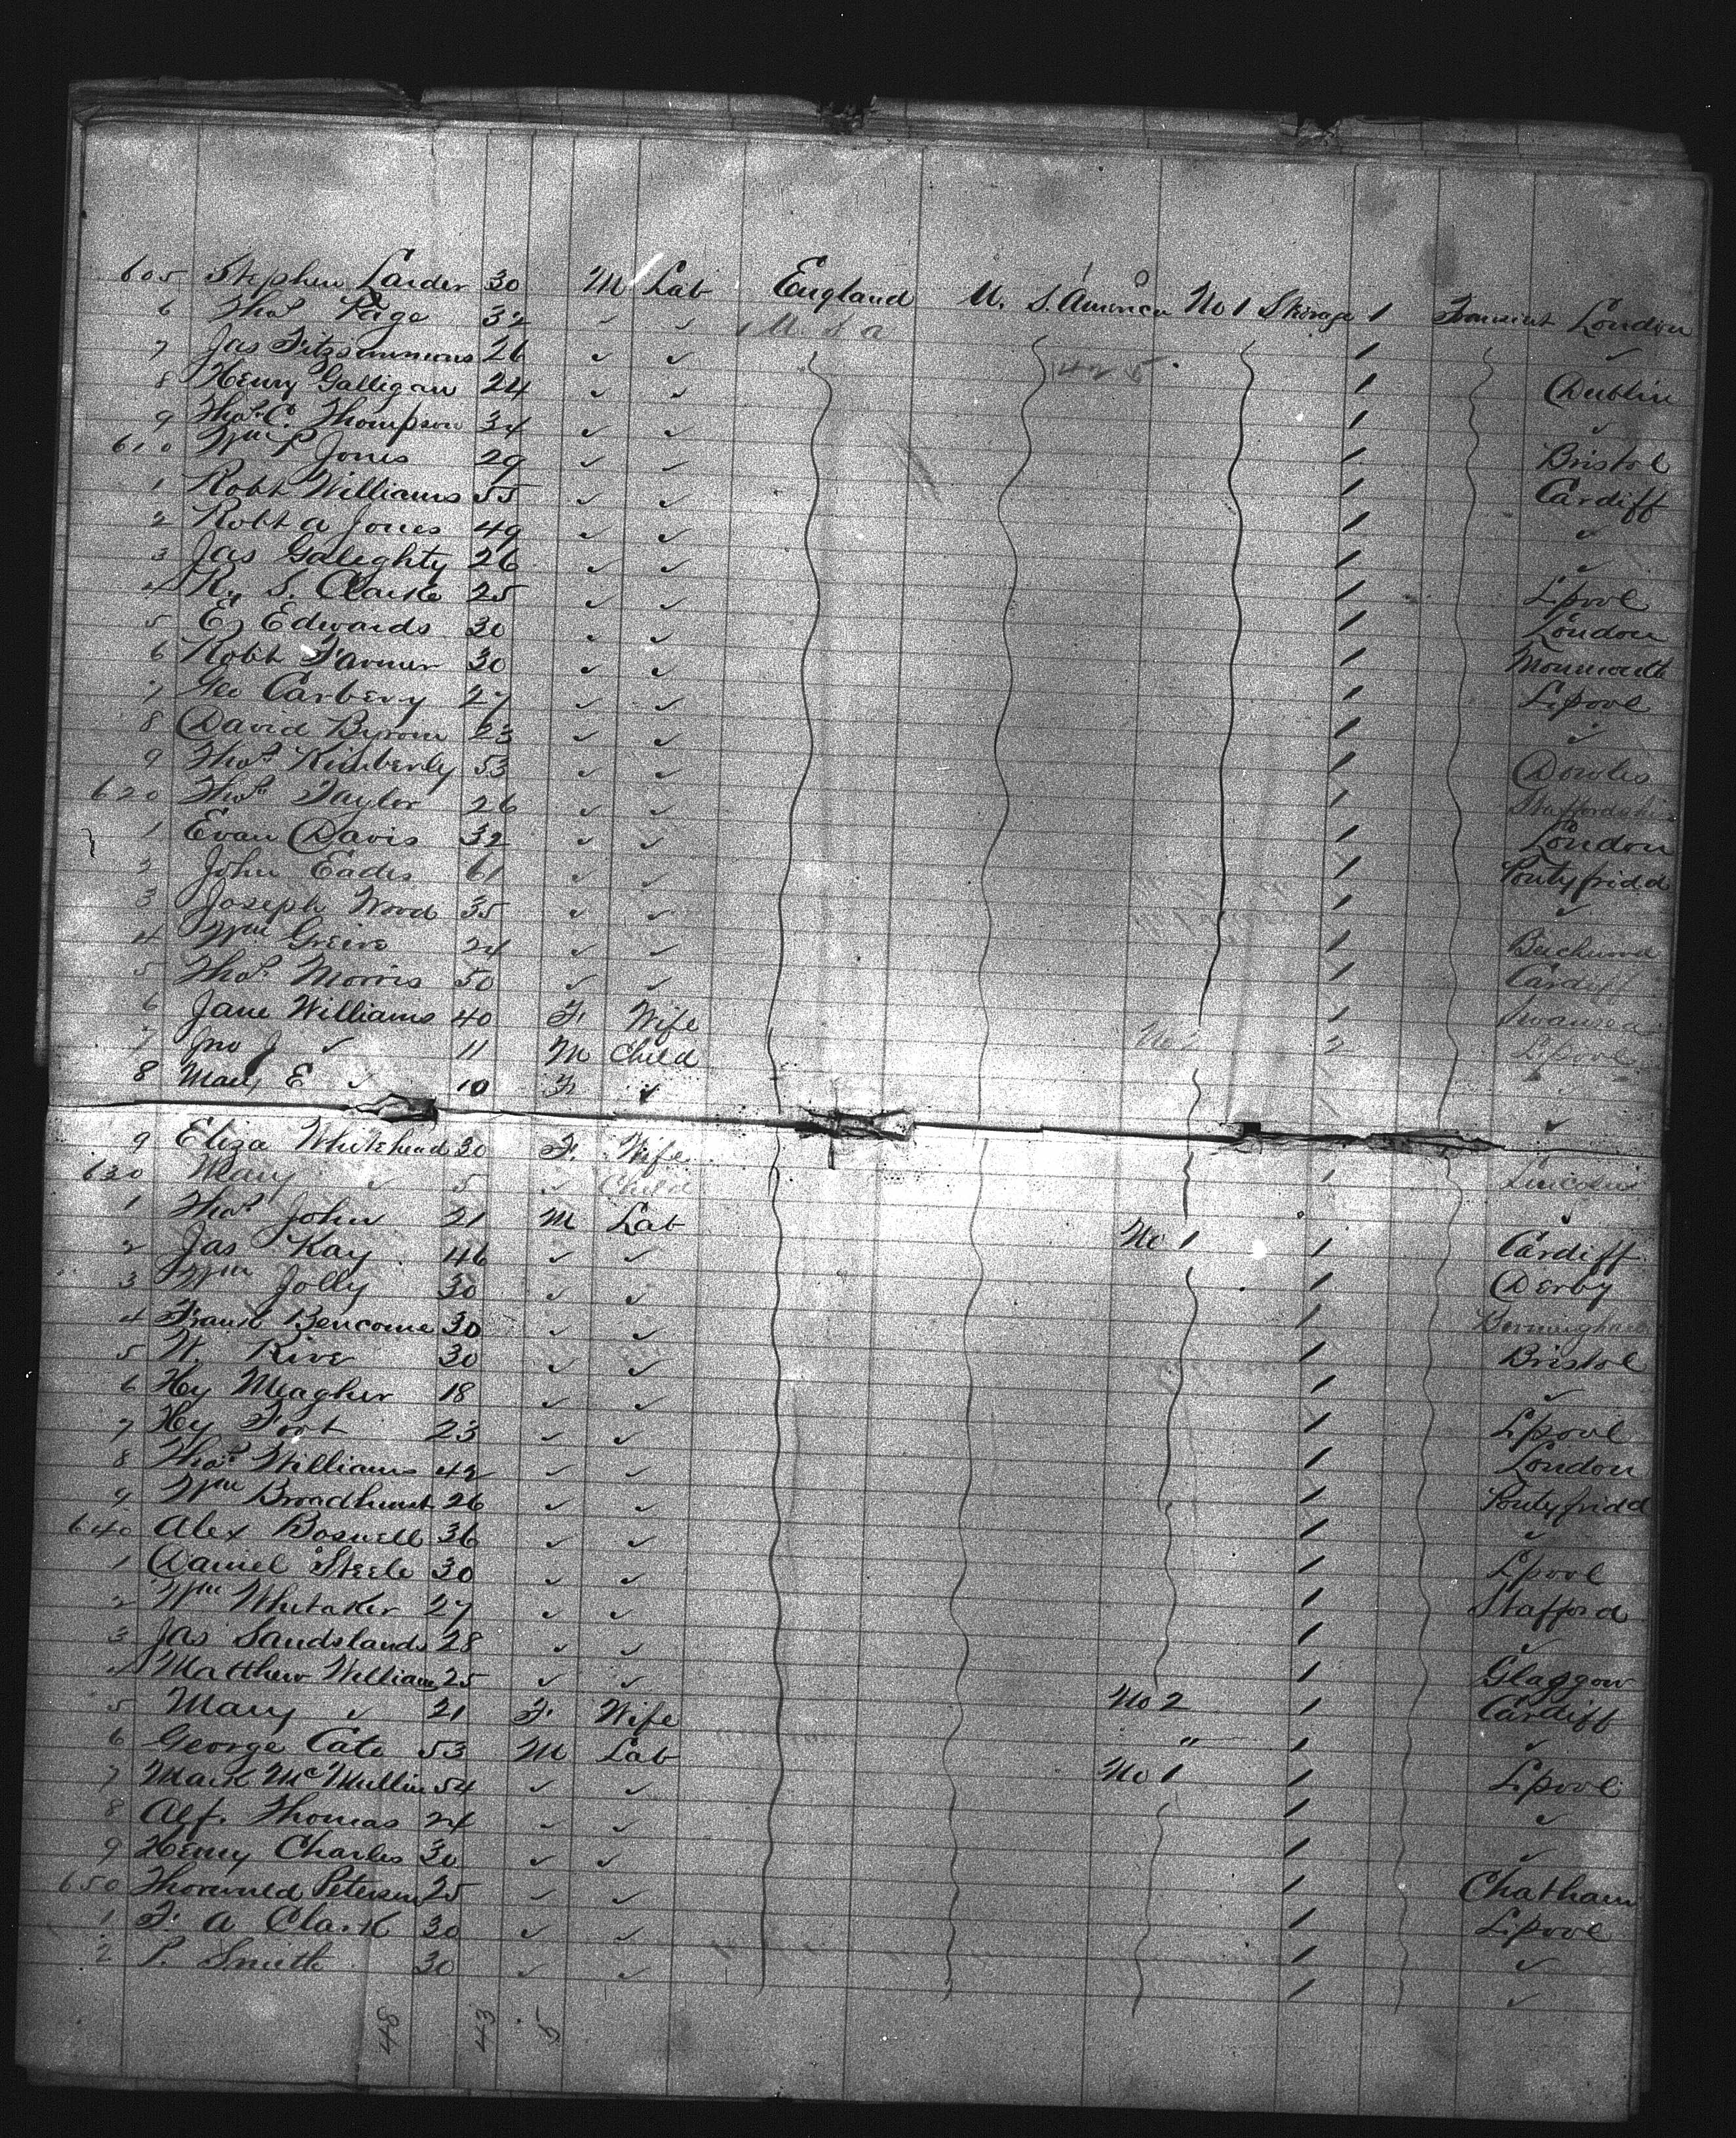 605 Stephen Larder 30 M Lab England U. S. America No 1 Steerage 1 Transient London
6 Thos Page 32 ✓ ✓ ✓ U. S a 1 ✓
7 Jas Fitzsimmons 26 ✓ ✓ 1 Dublin
8 Henry Galligan 24 ✓ ✓ 1 ✓
9 Thos C. Thompson 34 ✓ ✓ 1 Bristol
610 Wm P Jones 29 ✓ ✓ 1 Cardiff
1 Robt Williams 55 ✓ ✓ 1 ✓
2 Robt a Jones 49 ✓ ✓ 1 ✓
3 Jas Galeghty 26 ✓ ✓ 1 Lpool
4 R. S. Clarke 25 ✓ ✓ 1 London
5 E. Edwards 30 ✓ ✓ 1 Monmouth
6 Robt Farmer 30 ✓ ✓ 1 Lpool
7 Geo Carbery 27 ✓ ✓ 1 ✓
8 David Byrom 23 ✓ ✓ 1 Dowlis
9 Thos Kimberly 53 ✓ ✓ 1 Staffordshi
620 Thos Taylor 26 ✓ ✓ 1 London
1 Evan Davis 32 ✓ ✓ 1 Pontyfridd
2 John Eades 61 ✓ ✓ 1 ✓
3 Joseph Wood 35 ✓ ✓ 1
4 Wm Greive 24 ✓ ✓ 1 Cardiff
5 Thos Morris 50 ✓ ✓ 1 Swansea
6 Jane Williams 40 F. Wife No 2 2 Lpool
7 Jno J ✓ 11 M Child ✓
8 Mary E ✓ 10 F. ✓ ✓
9 Eliza Whitehead 30 F. Wife 1 Lincoln
630 Mary ✓ 5 ✓ Child ✓
1 Thos John 21 M Lab No 1 1 Cardiff
2 Jas Kay 46 ✓ ✓ 1 Derby
3 Wm Jolly 30 ✓ ✓ 1
4 Frank Bencome 30 ✓ ✓ 1 Bristol
5 W. River 30 ✓ ✓ 1 ✓
6 Hy Meagher 18 ✓ ✓ 1 Lpool
7 Hy Foot 23 ✓ ✓ 1 London
8 Thos Williams 42 ✓ ✓ 1 Pontyfridd
9 Wm Broadhurst 26 ✓ ✓ 1 ✓
640 Alex Boswell 36 ✓ ✓ 1 Lpool
1 Daniel Steele 30 ✓ ✓ 1 Stafford
2 Wm Whitaker 27 ✓ ✓ 1 ✓
3 Jas Sandslands 28 ✓ ✓ 1 Glasgow
4 Matthew Williams 25 ✓ ✓ No 2 1 Cardiff
5 Mary ✓ 21 F. Wife " 1 ✓
6 George Cate 53 M Lab No 1 1 Lpool
7 Mark McMullin 54 ✓ ✓ 1 ✓
8 Alf. Thomas 24 ✓ ✓ 1 ✓
9 Henry Charles 30 ✓ ✓ 1 Chatham
650 Thorwuld Petersen 25 ✓ ✓ 1 Lpool
1 F. A Clark 30 ✓ ✓ 1 ✓
2 P. Smith 30 ✓ ✓ 1 ✓
48 43 5